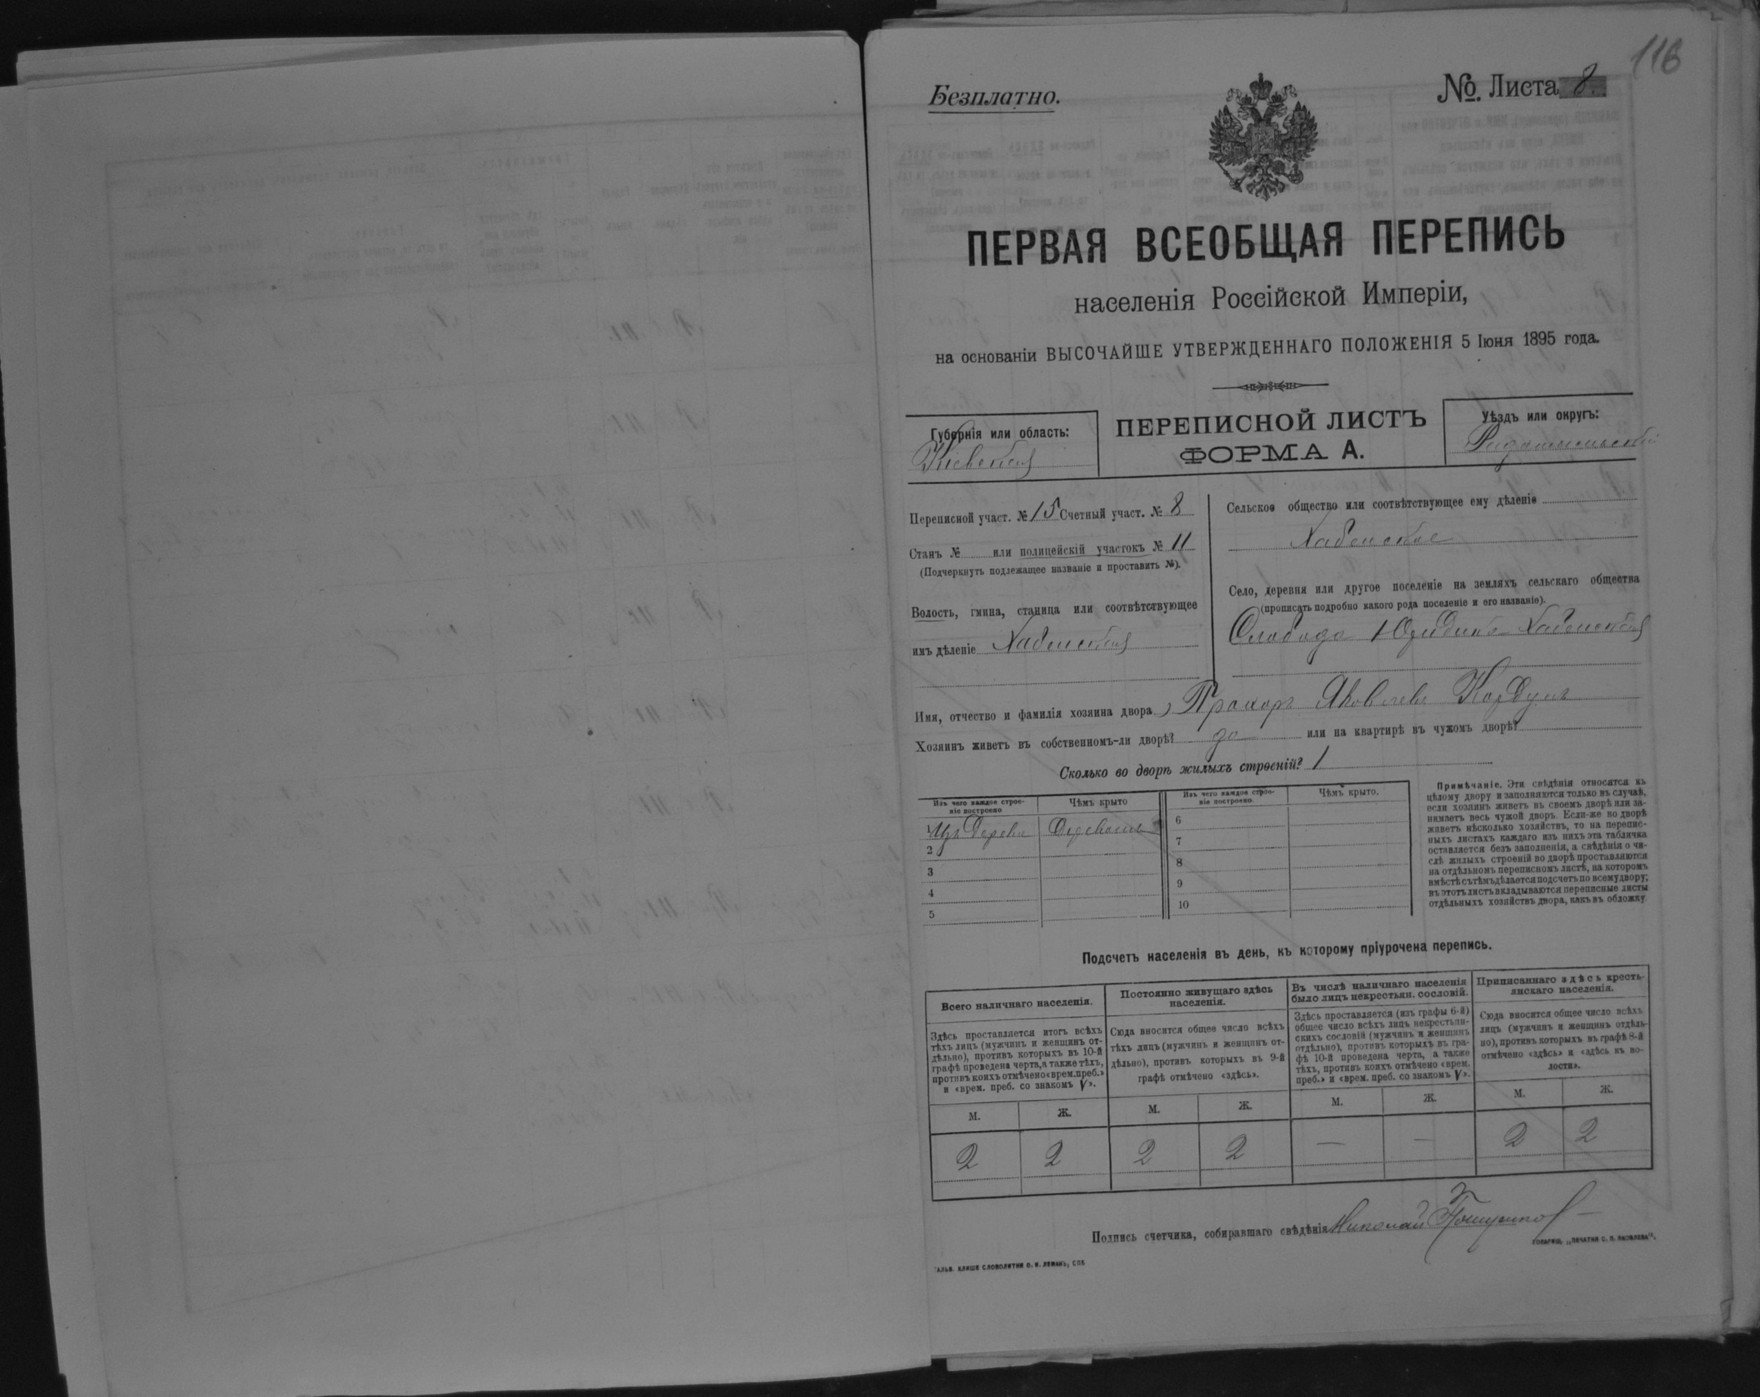 116
Безплатно.
№. Листа 8.
ПЕРВАЯ ВСЕОБЩАЯ ПЕРЕПИСЬ
населенія Россійской Имперіи,
на основаніи ВЫСОЧАЙШЕ УТВЕРЖДЕННАГО ПОЛОЖЕНІЯ 5 Іюня 1895 года.
Губернія или область:
Кіевская
ПЕРЕПИСНОЙ ЛИСТЪ
ФОРМА А.
Уѣздъ или округъ:
Радомысльскій
Переписной участ. № 15 Счетный участ. № 8
Станъ № или полицейскій участокъ № 11
(Подчеркнуть подлежащее названіе и проставить №).
Волость, гмина, станица или соотвѣтствующее
имъ дѣленіе Хабенская
Сельское общество или соотвѣтствующее ему дѣленіе
Хабенское
Село, деревня или другое поселеніе на земляхъ сельскаго общества
(прописать подробно какого рода поселеніе и его названіе).
Слобода Хабенская
Имя, отчество и фамилія хозяина двора Прохоръ Яковлевъ
Хозяинъ живетъ въ собственномъ-ли дворѣ? да или на квартирѣ въ чужомъ дворѣ?
Сколько во дворѣ жилыхъ строеній? 1
Изъ чего каждое строеніе построено
Чѣмъ крыто
Изъ чего каждое строеніе построено.
Чѣмъ крыто.
1 Изъ дерева Деревомъ
2
3
4
5
6
7
8
9
10
Примѣчаніе. Эти свѣдѣнія относятся къ
цѣлому двору и заполняются только въ случаѣ,
если хозяинъ живетъ въ своемъ дворѣ или за-
нимаетъ весь чужой дворъ. Если-же во дворѣ
живетъ нѣсколько хозяйствъ, то на перепис-
ныхъ листахъ каждаго изъ нихъ эта табличка
оставляется безъ заполненія, а свѣдѣнія о чи-
слѣ жилыхъ строеній во дворѣ проставляются
на отдѣльномъ переписномъ листѣ, на которомъ
вмѣстѣ съ тѣмъ дѣлается подсчетъ по всему двору;
въ этотъ листъ вкладываются переписные листы
отдѣльныхъ хозяйствъ двора, какъ въ обложку.
Подсчетъ населенія въ день, къ которому пріурочена перепись.
Всего наличнаго населенія.
Здѣсь проставляется итогъ всѣхъ
тѣхъ лицъ (мужчинъ и женщинъ от-
дѣльно), противъ которыхъ въ 10-й
графѣ проведена черта, а также тѣхъ,
противъ коихъ отмѣчено «врем. преб.»
и «врем. преб. со знакомъ V».
Постоянно живущаго здѣсь
населенія.
Сюда вносится общее число всѣхъ
тѣхъ лицъ (мужчинъ и женщинъ от-
дѣльно), противъ которыхъ въ 9-й
графѣ отмѣчено «здѣсь».
Въ числѣ наличнаго населенія
было лицъ некрестьян. сословій.
Здѣсь проставляется (изъ графы 6-й)
общее число всѣхъ лицъ некрестьян-
скихъ сословій (мужчинъ и женщинъ
отдѣльно), противъ которыхъ въ гра-
фѣ 10-й проведена черта, а также
тѣхъ, противъ коихъ отмѣчено «врем.
преб.» и «врем. преб. со знакомъ V».
Приписаннаго здѣсь кресть-
янскаго населенія.
Сюда вносится общее число всѣхъ
лицъ (мужчинъ и женщинъ отдѣль-
но), противъ которыхъ въ графѣ 8-й
отмѣчено «здѣсь» и «здѣсь къ во-
лости».
М. Ж. М. Ж. М. Ж. М. Ж.
2 2 2 2 — — 2 2
Подпись счетчика, собиравшаго свѣдѣнія Николай